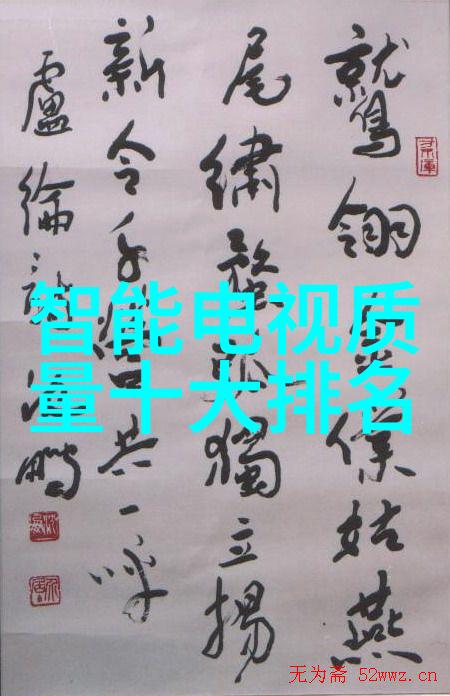 鷲翎金僕姑燕
尾繡蝥弧獨立揚
新令千營共一呼
盧綸詩 鵬
智能电视质
量十大排名
无为斋 52wwz.cn